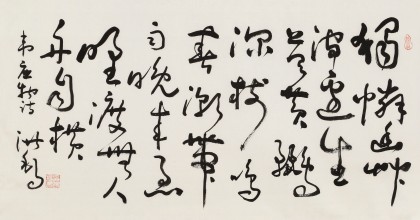 獨憐幽草
澗邊生
上有黄鸝
深樹鳴
春潮帶
雨晚来急
野渡無人
舟自横
韋應物詩